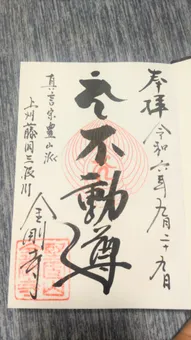 奉拝
令和六年九月二十九日
不動尊
真言宗豊山派
上州藤岡三波川
金剛寺